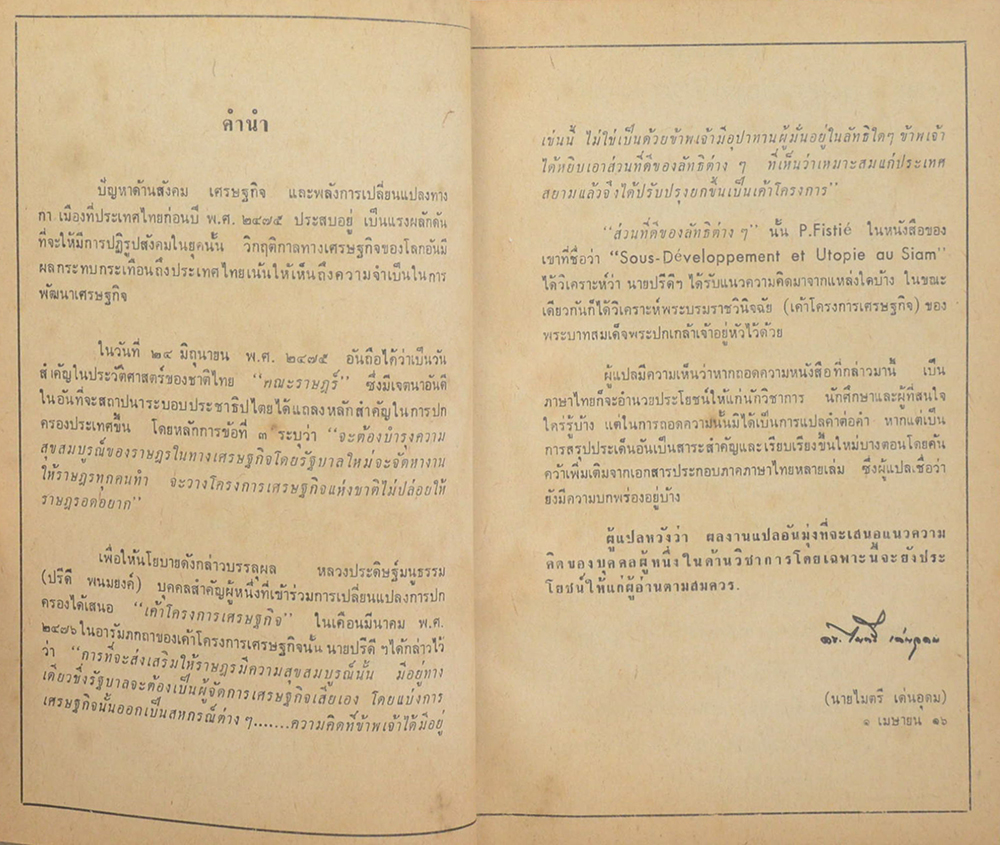 คำนำ
ปัญหาด้านสังคม เศรษฐกิจ และพลังการเปลี่ยนแปลงทาง
กา เมืองที่ประเทศไทยก่อนปี พ.ศ. ๒๔๗๕ ประสบอยู่ เป็นแรงผลักดัน
ที่จะให้มีการปฏิรูปสังคมในยุคนั้น วิกฤติกาลทางเศรษฐกิจของโลกอันมี
ผลกระทบกระเทือนถึงประเทศไทยเน้นให้เห็นถึงความจำเป็นในการ
พัฒนาเศรษฐกิจ
ในวันที่ ๒๔ มิถุนายน พ.ศ. ๒๔๗๕ อันถือได้ว่าเป็นวัน
สำคัญในประวัติศาสตร์ของชาติไทย “คณะราษฎร์” ซึ่งมีเจตนาอันดี
ในอันที่จะสถาปนาระบอบประชาธิปไตยได้แถลงหลักสำคัญในการปก
ครองประเทศขึ้น โดยหลักการข้อที่ ๓ ระบุว่า “จะต้องบำรุงความ
สุขสมบูรณ์ของราษฎรในทางเศรษฐกิจโดยรัฐบาลใหม่จะจัดหางาน
ให้ราษฎรทุกคนทำ จะวางโครงการเศรษฐกิจแห่งชาติไม่ปล่อยให้
ราษฎรอดอยาก”
เพื่อให้นโยบายดังกล่าวบรรลุผล หลวงประดิษฐ์มนูธรรม
(ปรีดี พนมยงค์) บุคคลสำคัญผู้หนึ่งที่เข้าร่วมการเปลี่ยนแปลงการปก
ครองได้เสนอ “เค้าโครงการเศรษฐกิจ” ในเดือนมีนาคม พ.ศ.
๒๔๗๖ ในอารัมภกถาของเค้าโครงการเศรษฐกิจนั้น นายปรีดี ฯได้กล่าวไว้
ว่า “การที่จะส่งเสริมให้ราษฎรมีความสุขสมบูรณ์นั้น มีอยู่ทาง
เดียวซึ่งรัฐบาลจะต้องเป็นผู้จัดการเศรษฐกิจเสียเอง โดยแบ่งการ
เศรษฐกิจนั้นออกเป็นสหกรณ์ต่าง ๆ.......ความคิดที่ข้าพเจ้าได้มีอยู่
เช่นนี้ ไม่ใช่เป็นด้วยข้าพเจ้ามีอุปาทานผู้มั่นอยู่ในลัทธิใดๆ ข้าพเจ้า
ได้หยิบเอาส่วนที่ดีของลัทธิต่าง ๆ ที่เห็นว่าเหมาะสมแก่ประเทศ
สยามแล้วจึงได้ปรับปรุงยกขึ้นเป็นเค้าโครงการ”
“ส่วนที่ดีของลัทธิต่าง ๆ” นั้น P.Fistié ในหนังสือของ
เขาที่ชื่อว่า “Sous-Développement et Utopie au Siam”
ได้วิเคราะห์ว่า นายปรีดีฯ ได้รับแนวความคิดมาจากแหล่งใดบ้าง ในขณะ
เดียวกันก็ได้วิเคราะห์พระบรมราชวินิจฉัย (เค้าโครงการเศรษฐกิจ) ของ
พระบาทสมเด็จพระปกเกล้าเจ้าอยู่หัวไว้ด้วย
ผู้แปลมีความเห็นว่าหากถอดความหนังสือที่กล่าวมานี้ เป็น
ภาษาไทยก็จะอำนวยประโยชน์ให้แก่นักวิชาการ นักศึกษาและผู้ที่สนใจ
ใคร่รู้บ้าง แต่ในการถอดความนั้นมิได้เป็นการแปลคำต่อคำ หากแต่เป็น
การสรุปประเด็นอันเป็นสาระสำคัญและเรียบเรียงขึ้นใหม่บางตอนโดยค้น
คว้าเพิ่มเติมจากเอกสารประกอบภาคภาษาไทยหลายเล่ม ซึ่งผู้แปลเชื่อว่า
ยังมีความบกพร่องอยู่บ้าง
ผู้แปลหวังว่า ผลงานแปลอันมุ่งที่จะเสนอแนวความ
คิดของบุคคลผู้หนึ่งในด้านวิชาการโดยเฉพาะนี้จะยังประ
โยชน์ให้แก่ผู้อ่านตามสมควร.
(นายไมตรี เด่นอุดม)
๑ เมษายน ๑๖